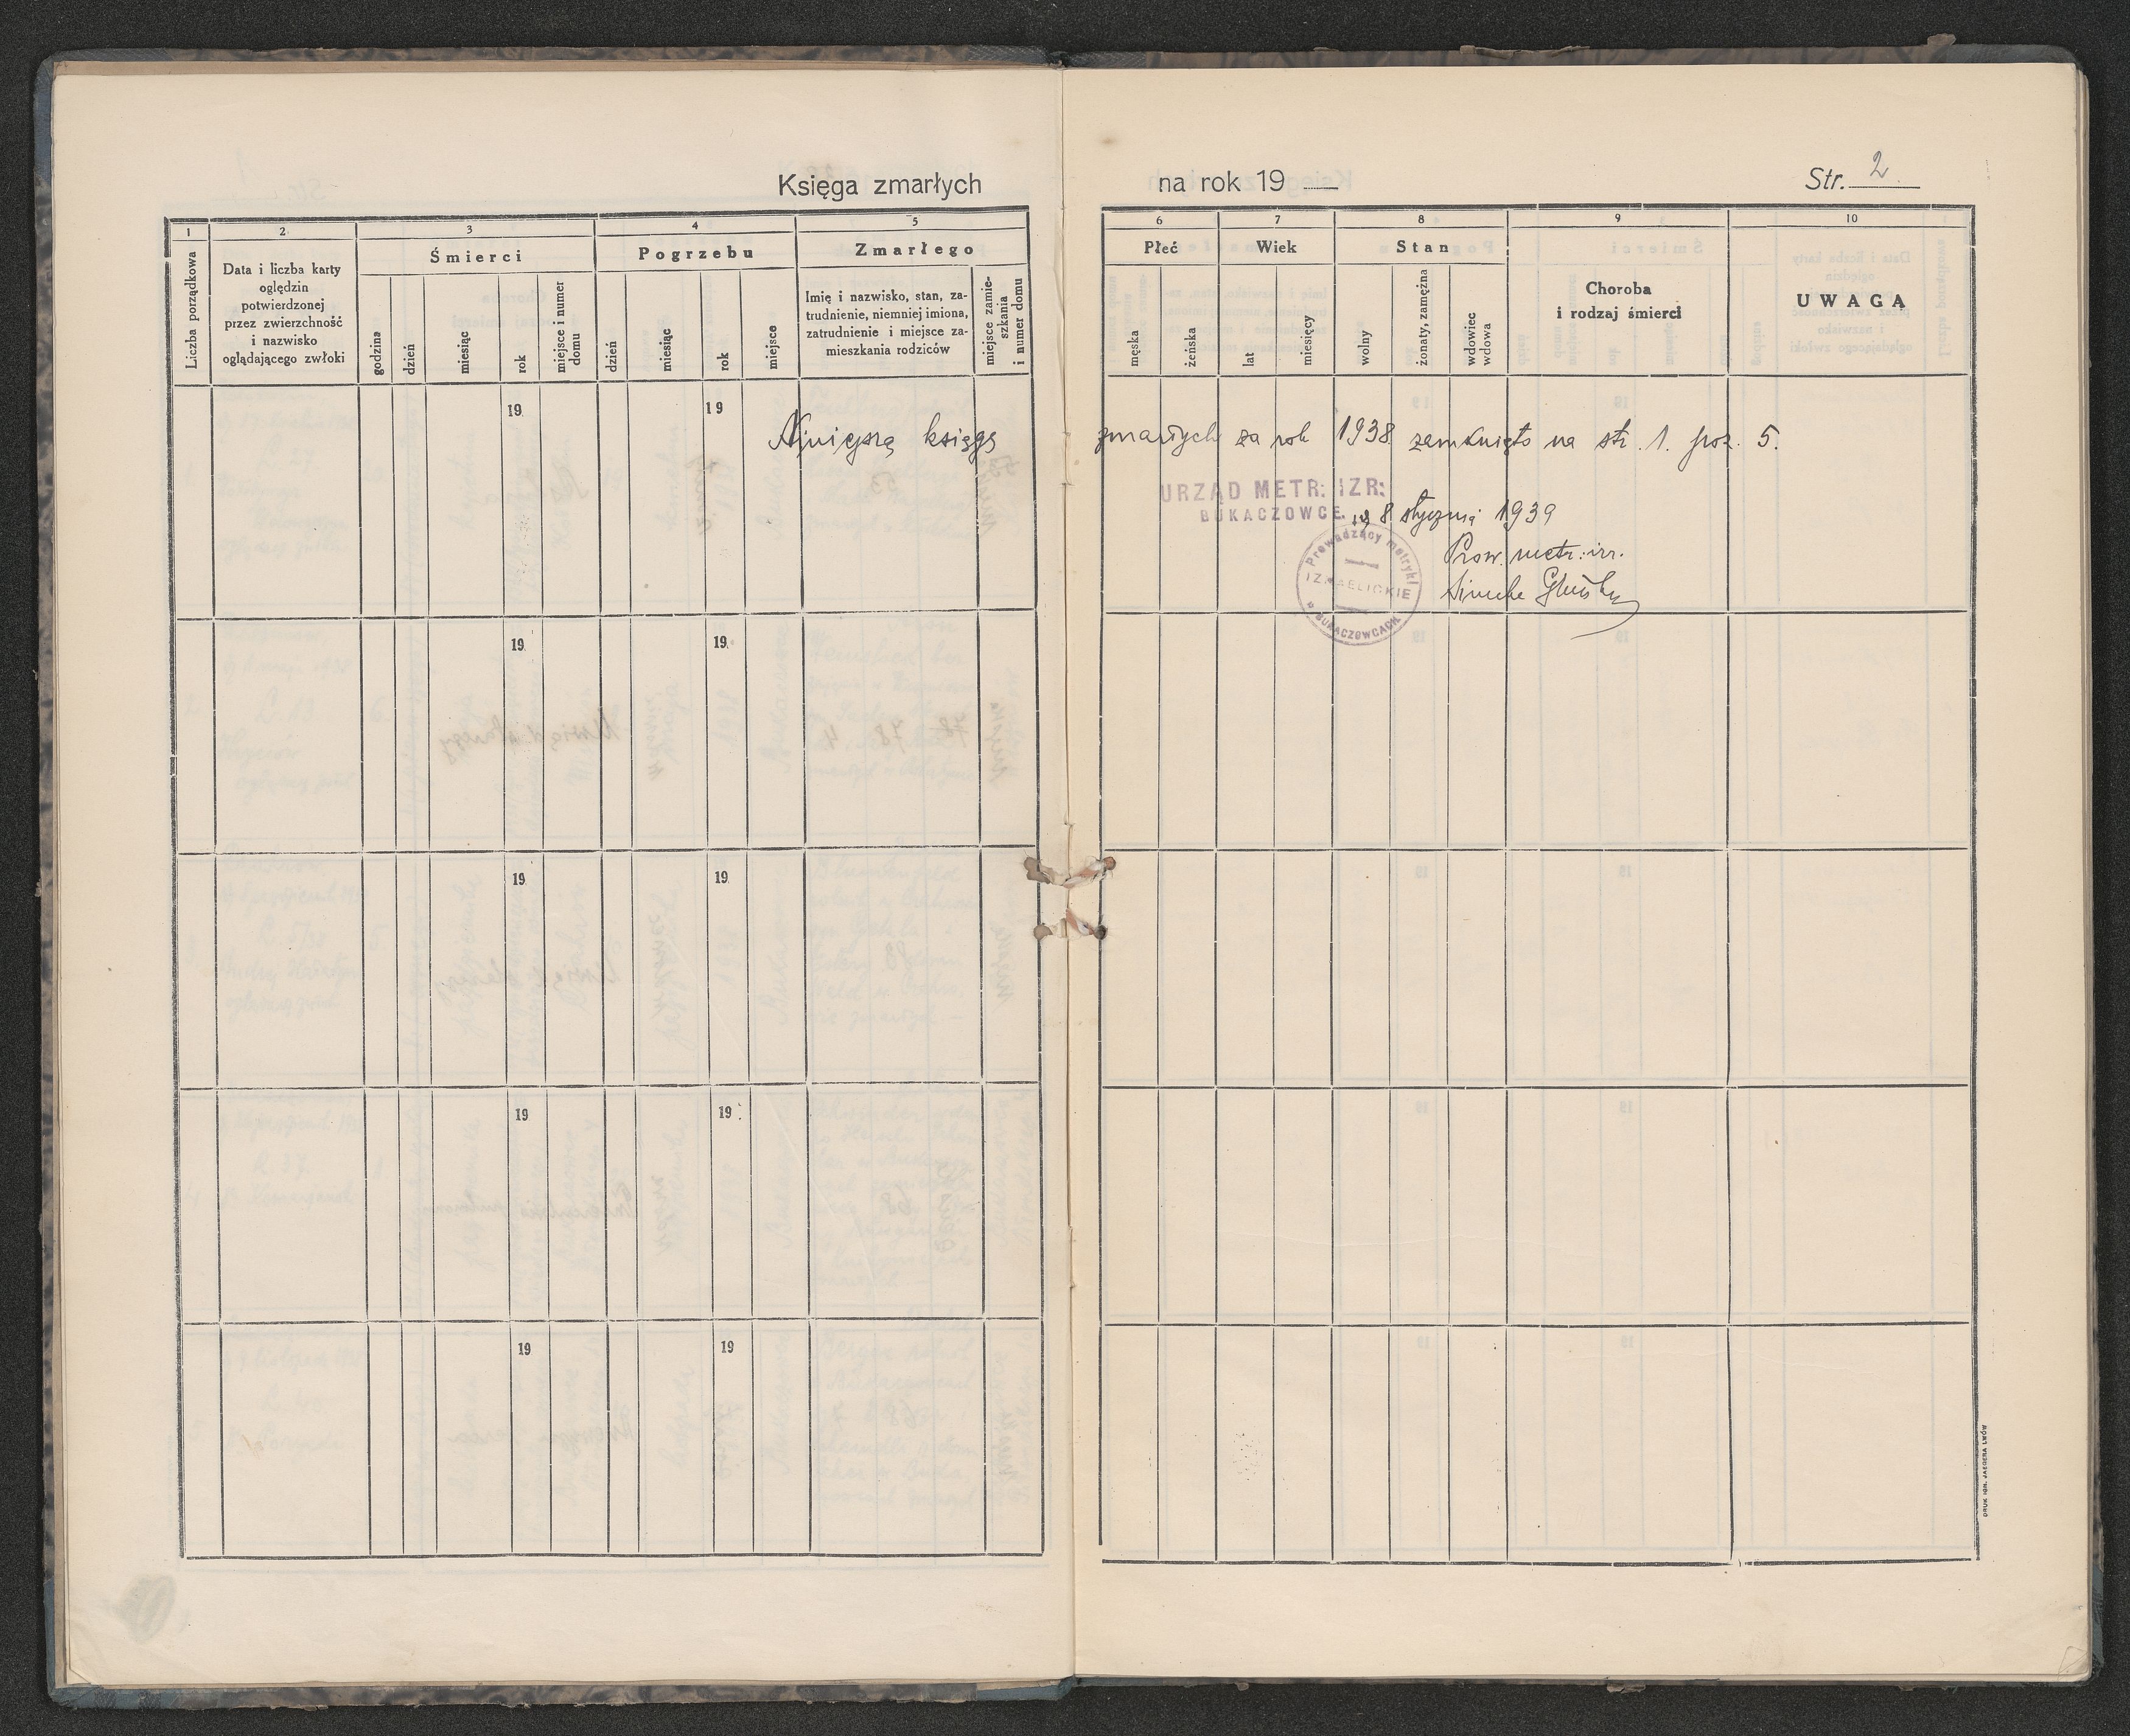 Księga zmarłych na rok 19
Str. 2
1 2 3 4 5 6 7 8 9 10
Liczba porządkowa
Data i liczba karty
oględzin
potwierdzonej
przez zwierzchność
i nazwisko
oglądającego zwłoki
Śmierci
godzina
dzień
miesiąc
rok
miejsce i numer
domu
Pogrzebu
dzień
miesiąc
rok
miejsce
Zmarłego
Imię i nazwisko, stan, za-
trudnienie, niemniej imiona,
zatrudnienie i miejsce za-
mieszkania rodziców
miejsce zamie-
szkania
i numer domu
Płeć
męska
żeńska
Wiek
lat
miesięcy
Stan
wolny
żonaty, zamężna
wdowiec
wdowa
Choroba
i rodzaj śmierci
UWAGA
19 19
Niniejszą księgę zmarłych za rok 1938 zamknięto na str. 1. poz. 5.
URZĄD METR. IZR.
BUKACZOWCE, 8 stycznia 1939
Prow. metr. izr.
Prowadzący metryki
IZRAELICKIE
w BUKACZOWCACH
19 19
19 19
19 19
19 19
DRUK IGN. JAEGERA LWÓW